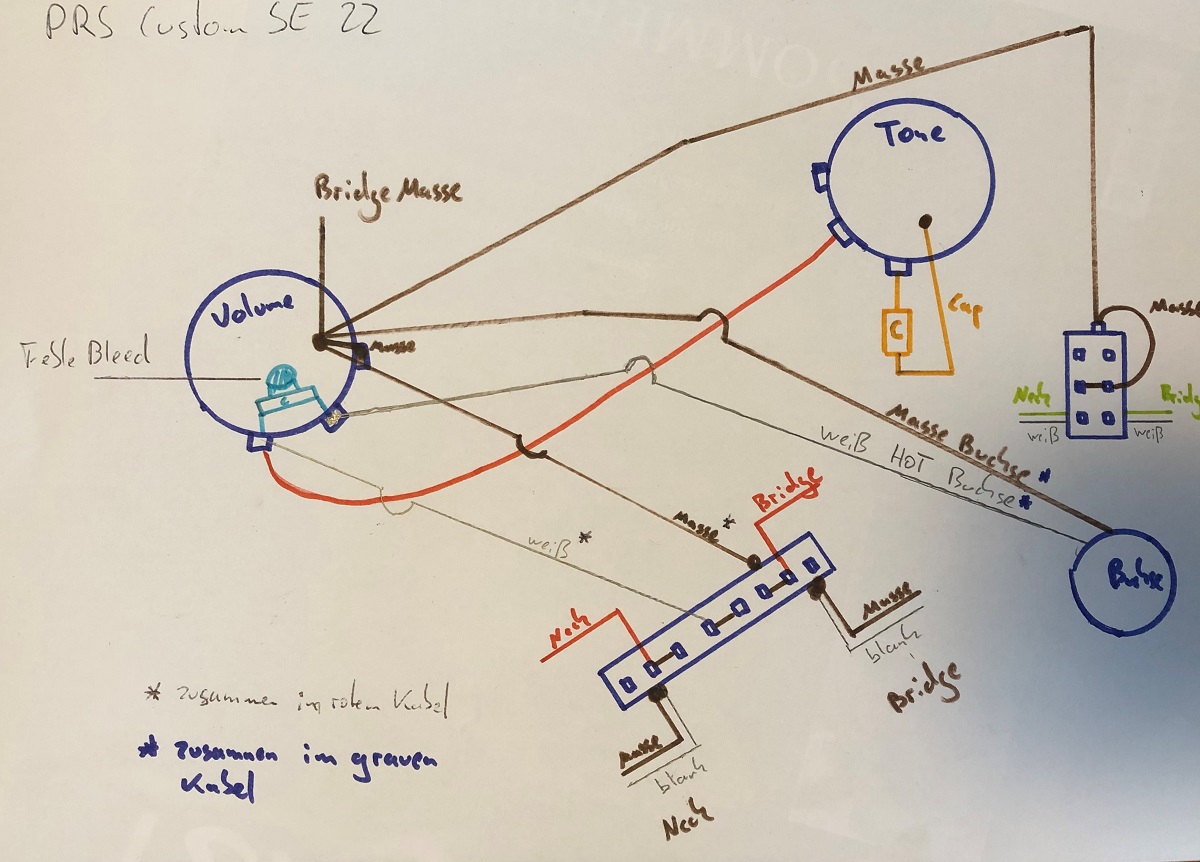 PRS Custom SE 22
Masse
Tone
Bridge Masse
Volume
Masse
Cap
C
Masse
Bleed
C
Neck
Bridg
weiß
weiß
Masse Buchse *
weiß HOT Buchse *
Bridge
Masse *
weiß *
Buchse
Neck
Masse
blank
Bridge
Masse
blank
Neck
* zusammen im roten Kabel
* zusammen im grauen
Kabel